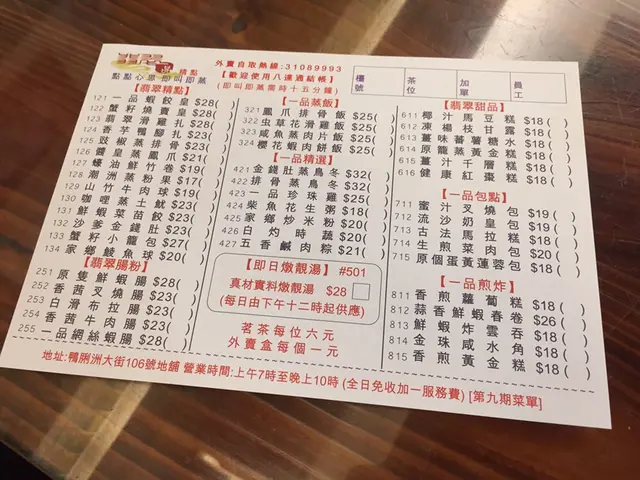 翡翠
精點
點點心思 即叫即蒸
外賣自取熱線:31089993
【歡迎使用八達通結帳】
(即叫即蒸需時十五分鐘)
檯號
茶位
加單
員工
【翡翠精點】
121 一品蝦餃皇 $28( )
122 蟹籽燒賣皇 $28( )
123 翡翠滑雞扎 $23( )
124 香芋鴨腳扎 $23( )
125 豉椒蒸排骨 $23( )
126 醬皇蒸鳳爪 $21( )
127 蠔油鮮竹卷 $19( )
128 潮洲蒸粉果 $17( )
129 山竹牛肉球 $19( )
130 咖哩蒸土魷 $23( )
131 鮮蝦菜苗餃 $23( )
132 沙爹金錢肚 $23( )
133 蟹籽小籠包 $27( )
134 家鄉鯪魚球 $20( )
【翡翠腸粉】
251 原隻鮮蝦腸 $28( )
252 香茜叉燒腸 $23( )
253 白滑布拉腸 $23( )
254 香茜牛肉腸 $23( )
255 一品網絲蝦腸 $28( )
【一品蒸飯】
321 鳳爪排骨飯 $25( )
322 虫草花滑雞飯 $25( )
323 咸魚蒸肉片飯 $25( )
324 櫻花蝦肉餅飯 $25( )
【一品精選】
421 金錢肚蒸烏冬 $32( )
422 排骨蒸烏冬 $32( )
423 一品珍珠雞 $25( )
424 柴魚花生粥 $18( )
425 家鄉炒米粉 $20( )
426 白灼時蔬 $20( )
427 五香鹹肉粽 $21( )
【即日燉靚湯】 #501
真材實料燉靚湯 $28
(每日由下午十二時起供應)
茗茶每位六元
外賣盒每個一元
【翡翠甜品】
611 椰汁馬豆糕 $18( )
612 凍楊枝甘露 $18( )
613 薑味蕃薯糖水 $18( )
614 原籠蒸黃金糕 $18( )
615 薑汁千層糕 $18( )
616 健康紅棗糕 $18( )
【一品包點】
711 蜜汁叉燒包 $19( )
712 流沙奶皇包 $19( )
713 古法馬拉糕 $18( )
714 生煎菜肉包 $20( )
715 原個蛋黃蓮蓉包 $18( )
【一品煎炸】
811 香煎蘿蔔糕 $18( )
812 蒜香鮮蝦春卷 $26( )
813 鮮蝦炸雲吞 $18( )
814 金珠咸水角 $18( )
815 香煎黃金糕 $18( )
地址:鴨脷洲大街106號地舖 營業時間:上午7時至晚上10時 (全日免收加一服務費) [第九期菜單]